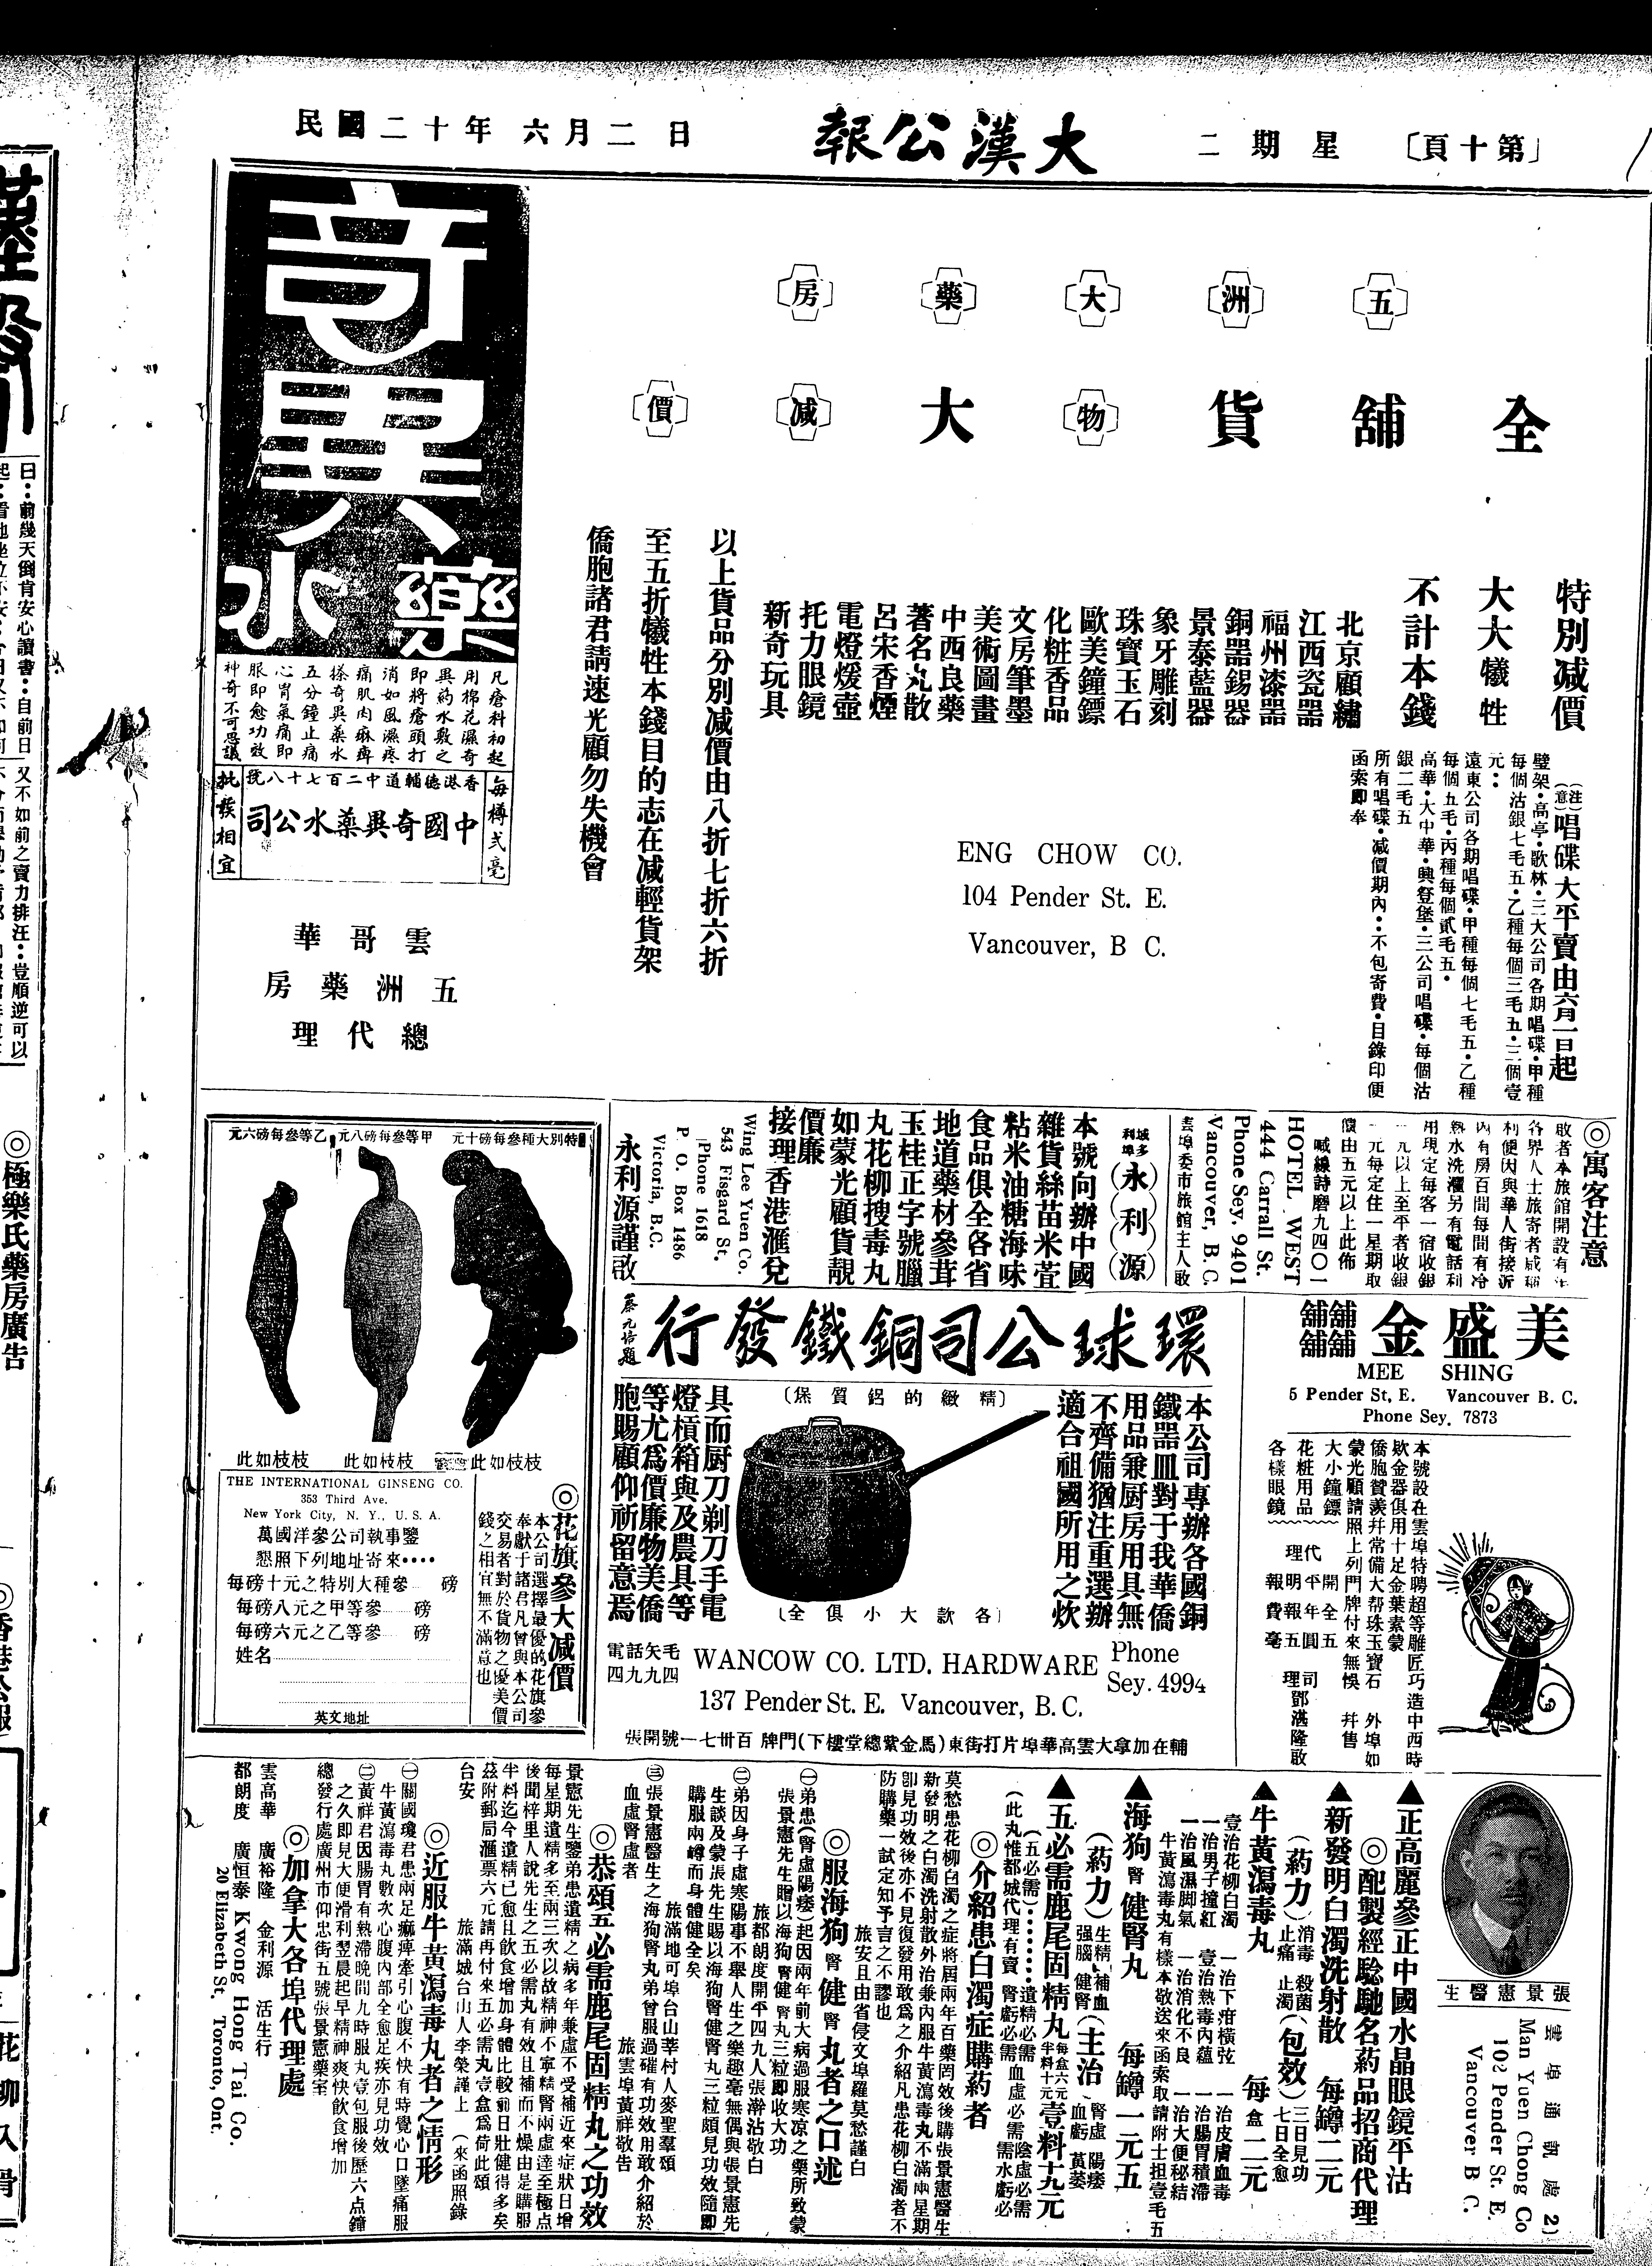 民國二十年六月二日
大漢公報
星期二
〔第十頁〕
五洲大藥房
全舖貨物大减價
特別减價
大大犧牲
不計本錢
北京顧繡
江西瓷器
福州漆器
銅器錫器
景泰藍器
象牙雕刻
珠寶玉石
歐美鐘鏢
化粧香品
文房筆墨
美術圖畫
中西良藥
著名丸散
呂宋香煙
電燈煖壺
托力眼鏡
新奇玩具
以上貨品分別减價由八折七折六折
至五折犧牲本錢目的志在减輕貨架
僑胞諸君請速光顧勿失機會
(注意)唱碟大平賣由六月一日起
璧架·高亭·歌林·三大公司各期唱碟·甲種
每個沽銀七毛五·乙種每個三毛五·三個壹
元··
遠東公司各期唱碟·甲種每個七毛五·乙種
每個五毛·丙種每個貳毛五·
高華·大中華·興登堡·三公司唱碟·每個沽
銀二毛五
所有唱碟·减價期內··不包寄費·目錄印便
函索即奉
ENG CHOW CO.
104 Pender St. E.
Vancouver, B C.
奇異藥水
凡瘡科初起
用棉花濕奇
異葯水敷之
即將瘡頭打
消如風濕疼
痛肌肉麻痺
搽奇異藥水
五分鐘止痛
心胃氣痛即
服即愈功效
神奇不可思議
每樽弍毫
香港德輔道中二百七十八號
中國奇異藥水公司
批發相宜
雲哥華
五洲藥房
總代理
◎寓客注意
敬者本旅館開設有年
各界人士旅寄者咸稱
利便因與華人街接近
內有房百間每間有冷
熱水洗濯另有電話利
用現定每客一宿收銀
一元以上至平者收銀
一元每定住一星期取
價由五元以上此佈
喊線詩磨九四〇一
HOTEL WEST
444 Carrall St.
Phone Sey. 9401
Vancouver, B. C.
雲埠委市旅館主人啟
域多利埠
(永)(利)(源)
本號向辦中國
雜貨絲苗米萓
粘米油糖海味
食品俱全各省
地道藥材參茸
玉桂正字號臘
丸花柳搜毒丸
如蒙光顧貨靚
價廉
接理香港滙兌
Wing Lee Yuen Co.
543 Fisgard St,
Phone 1618
P. O. Box 1486
Victoria, B.C.
永利源謹啟
特別大種參每磅十元 甲等參每磅八元 乙等參每磅六元
枝枝如此 枝枝如此 枝枝如此
◎花旗參大减價
本公司選擇最優的花旗參
奉獻于諸君凡曾與本公司
交易者對於貨物之優美價
錢之相宜無不滿意也
THE INTERNATIONAL GINSENG CO.
353 Third Ave.
New York City, N. Y., U. S. A.
萬國洋參公司執事鑒
懇照下列地址寄來····
每磅十元之特別大種參 磅
每磅八元之甲等參 磅
每磅六元之乙等參 磅
姓名
英文地址
環球公司銅鐵發行
蔡元培題
本公司專辦各國銅
鐵器皿對于我華僑
用品兼厨房用具無
不齊備猶注重選辦
適合祖國所用之炊
〔精緻的鋁質煲〕
〔各款大小俱全〕
具而厨刀剃刀手電
燈槓箱與及農具等
等尤爲價廉物美僑
胞賜顧仰祈留意焉
電話矢毛
四九九四
WANCOW CO. LTD. HARDWARE
Phone
Sey. 4994
137 Pender St. E. Vancouver, B. C.
舖在加拿大雲高華埠片打街東(馬金紫總堂樓下)門牌百卅七一號開張
美盛金舖
MEE SHING
5 Pender St, E. Vancouver B. C.
Phone Sey. 7873
本號設在雲埠特聘超等雕匠巧造中西時
欵金器俱用十足金葉素蒙
僑胞贊羨幷常備大帮珠玉寶石 外埠如
蒙光顧請照上列門牌付來無悞 幷售
大小鐘鏢
花粧用品
各樣眼鏡
代理
開平明報
全年報費
五圓五毫
司理 鄧湛隆啟
張景憲醫生
雲埠通訊處
Man Yuen Chong Co
102 Pender St. E.
Vancouver B C.
▲正高麗參正中國水晶眼鏡平沽
◎配製經騐馳名葯品招商代理
▲新發明白濁洗射散 每罇二元
(葯力)消毒 殺菌 止痛 止濁(包效)三日見功 七日全愈
▲牛黃瀉毒丸 每盒二元
壹治花柳白濁 一治下疳橫弦 一治皮膚血毒
一治男子撞紅 壹治熱毒內蘊 一治腸胃積滯
一治風濕脚氣 一治消化不良 一治大便秘結
牛黃瀉毒丸有樣本敬送來函索取請附士担壹毛五
▲海狗腎健腎丸 每罇一元五
(葯力)生精 補血 强腦 健腎(主治)腎虛 陽痿 血虧 萎
▲五必需鹿尾固精丸 每盒六元 半料十元 壹料十九元
(五必需)·······遺精必需 血虛必需 陰虛必需
(此丸惟都城代理有賣 腎虧必需 需水虧必
◎介紹患白濁症購葯者
莫愁患花柳白濁之症將屆兩年百藥罔效後購張景憲醫生
新發明之白濁洗射散外治兼內服牛黃瀉毒丸不滿兩星期
卽見功效後亦不見復發用敢爲之介紹凡患花柳白濁者不
防購藥一試定知予言之不謬也
旅安且由省侵文埠羅莫愁謹白
◎服海狗腎健腎丸者之口述
㊀弟患(腎虛陽痿)起因兩年前大病過服寒凉之藥所致蒙
張景憲先生贈以海狗腎健腎丸三粒即收大功
旅都朗度開平四九人張澣沾敬白
㊁弟因身子虛寒陽事不舉人生之樂趣毫無偶與張景憲先
生談及蒙張先生賜以海狗腎健腎丸三粒頗見功效隨即
購服兩罇而身體健全矣
旅滿地可埠台山莘村人麥聖羣頌
㊂張景憲醫生之海狗腎丸弟曾服過確有功效用敢介紹於
血虛腎虛者
旅雲埠黃祥敬告
◎恭頌五必需鹿尾固精丸之功效
景憲先生鑒弟患遺精之病多年兼虛不受補近來症狀日增
每星期遺精多至兩三次以故精神不寧精腎兩虛達至極点
後聞梓里人說先生之五必需丸有效且補而不燥由是購服
半料迄今遺精已愈且飲食增加身體比較前日壯健得多矣
茲附郵局滙票六元請再付來五必需丸壹盒爲荷此頌
台安
旅滿城台山人李榮謹上 (來函照錄
◎近服牛黃瀉毒丸者之情形
㊀關國瓊君患兩足痲痺牽引心腹不快有時覺心口墜痛服
牛黃瀉毒丸數次心腹內部全愈足疾亦見功效
㊁黃祥君因腸胃有熱滯晚間九時服丸壹包服後歷六点鐘
之久即見大便滑利翌晨起早精神爽快飲食增加
總發行處廣州市仰忠街五號張景憲藥室
◎加拿大各埠代理處
雲高華 廣裕隆 金利源 活生行
都朗度 廣恒泰 Kwong Hong Tai Co.
20 Elizabeth St. Toronto, Ont.
◎極樂氏藥房廣告